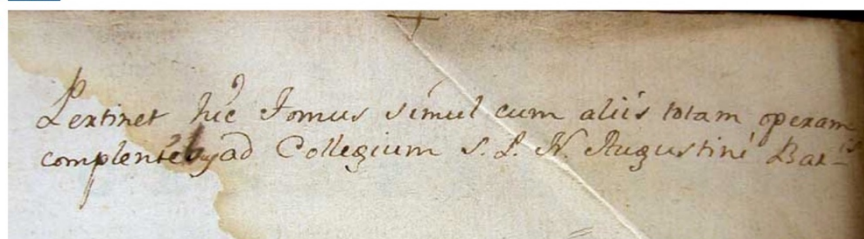 Pertinet hic Tomus simul cum aliis totam operam
complentib9 ad Collegium S. P. N. Augustini Bar-